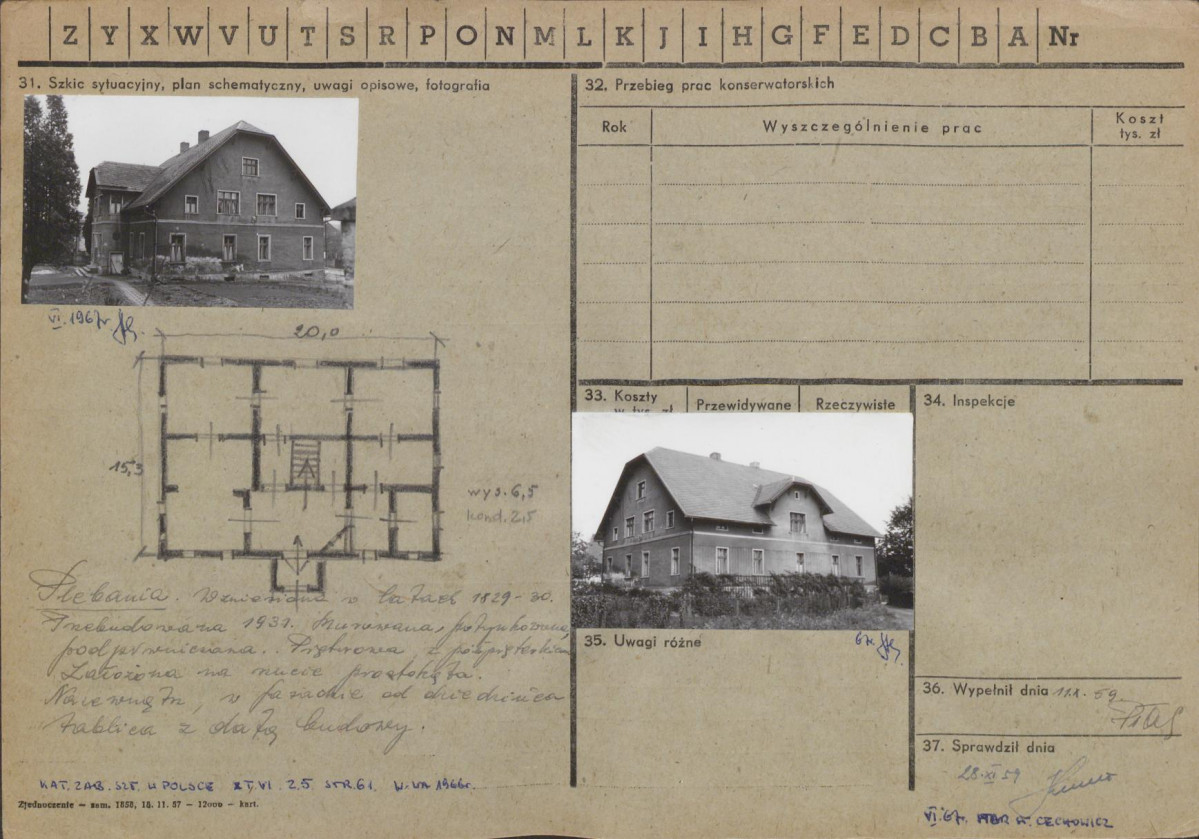 Z Y X W V U T S R P O N M L K J I H G F E D C B A Nr
31. Szkic sytuacyjny, plan schematyczny, uwagi opisowe, fotografia
VI. 1967r.
20,0
15,3
wys. 6,5
kond. 2.5
Plebania. Wzniesiona w latach 1829-30.
Przebudowana 1931. Murowana, potynkowana,
podpiwniczona. Piętrowa z półpiętrkiem
Założona na rzucie prostokąta.
Na zewnątrz, w fasadzie od dziedzińca
tablica z datą budowy.
KAT. ZAB. SZT. W POLSCE ZT. VI. Z. 5 STR. 61. W-WA 1966r.
Zjednoczenie — zam. 1858, 18. 11. 57 — 12000 — kart.
32. Przebieg prac konserwatorskich
Rok Wyszczególnienie prac Koszt tys. zł
33. Koszty w tys. zł Przewidywane Rzeczywiste
34. Inspekcje
35. Uwagi różne
67r.
36. Wypełnił dnia 59
37. Sprawdził dnia
28. XI 59
VI. 67r. MGR CECHOWICZ